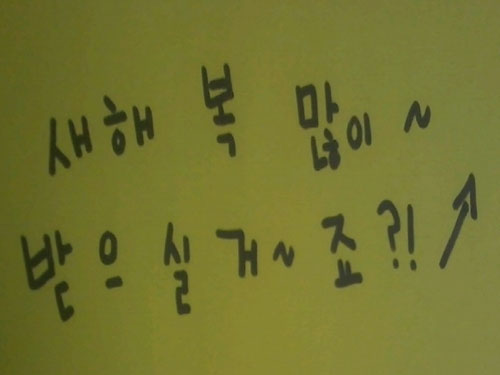 새해 복 많이~
받으실거~죠?! ↗